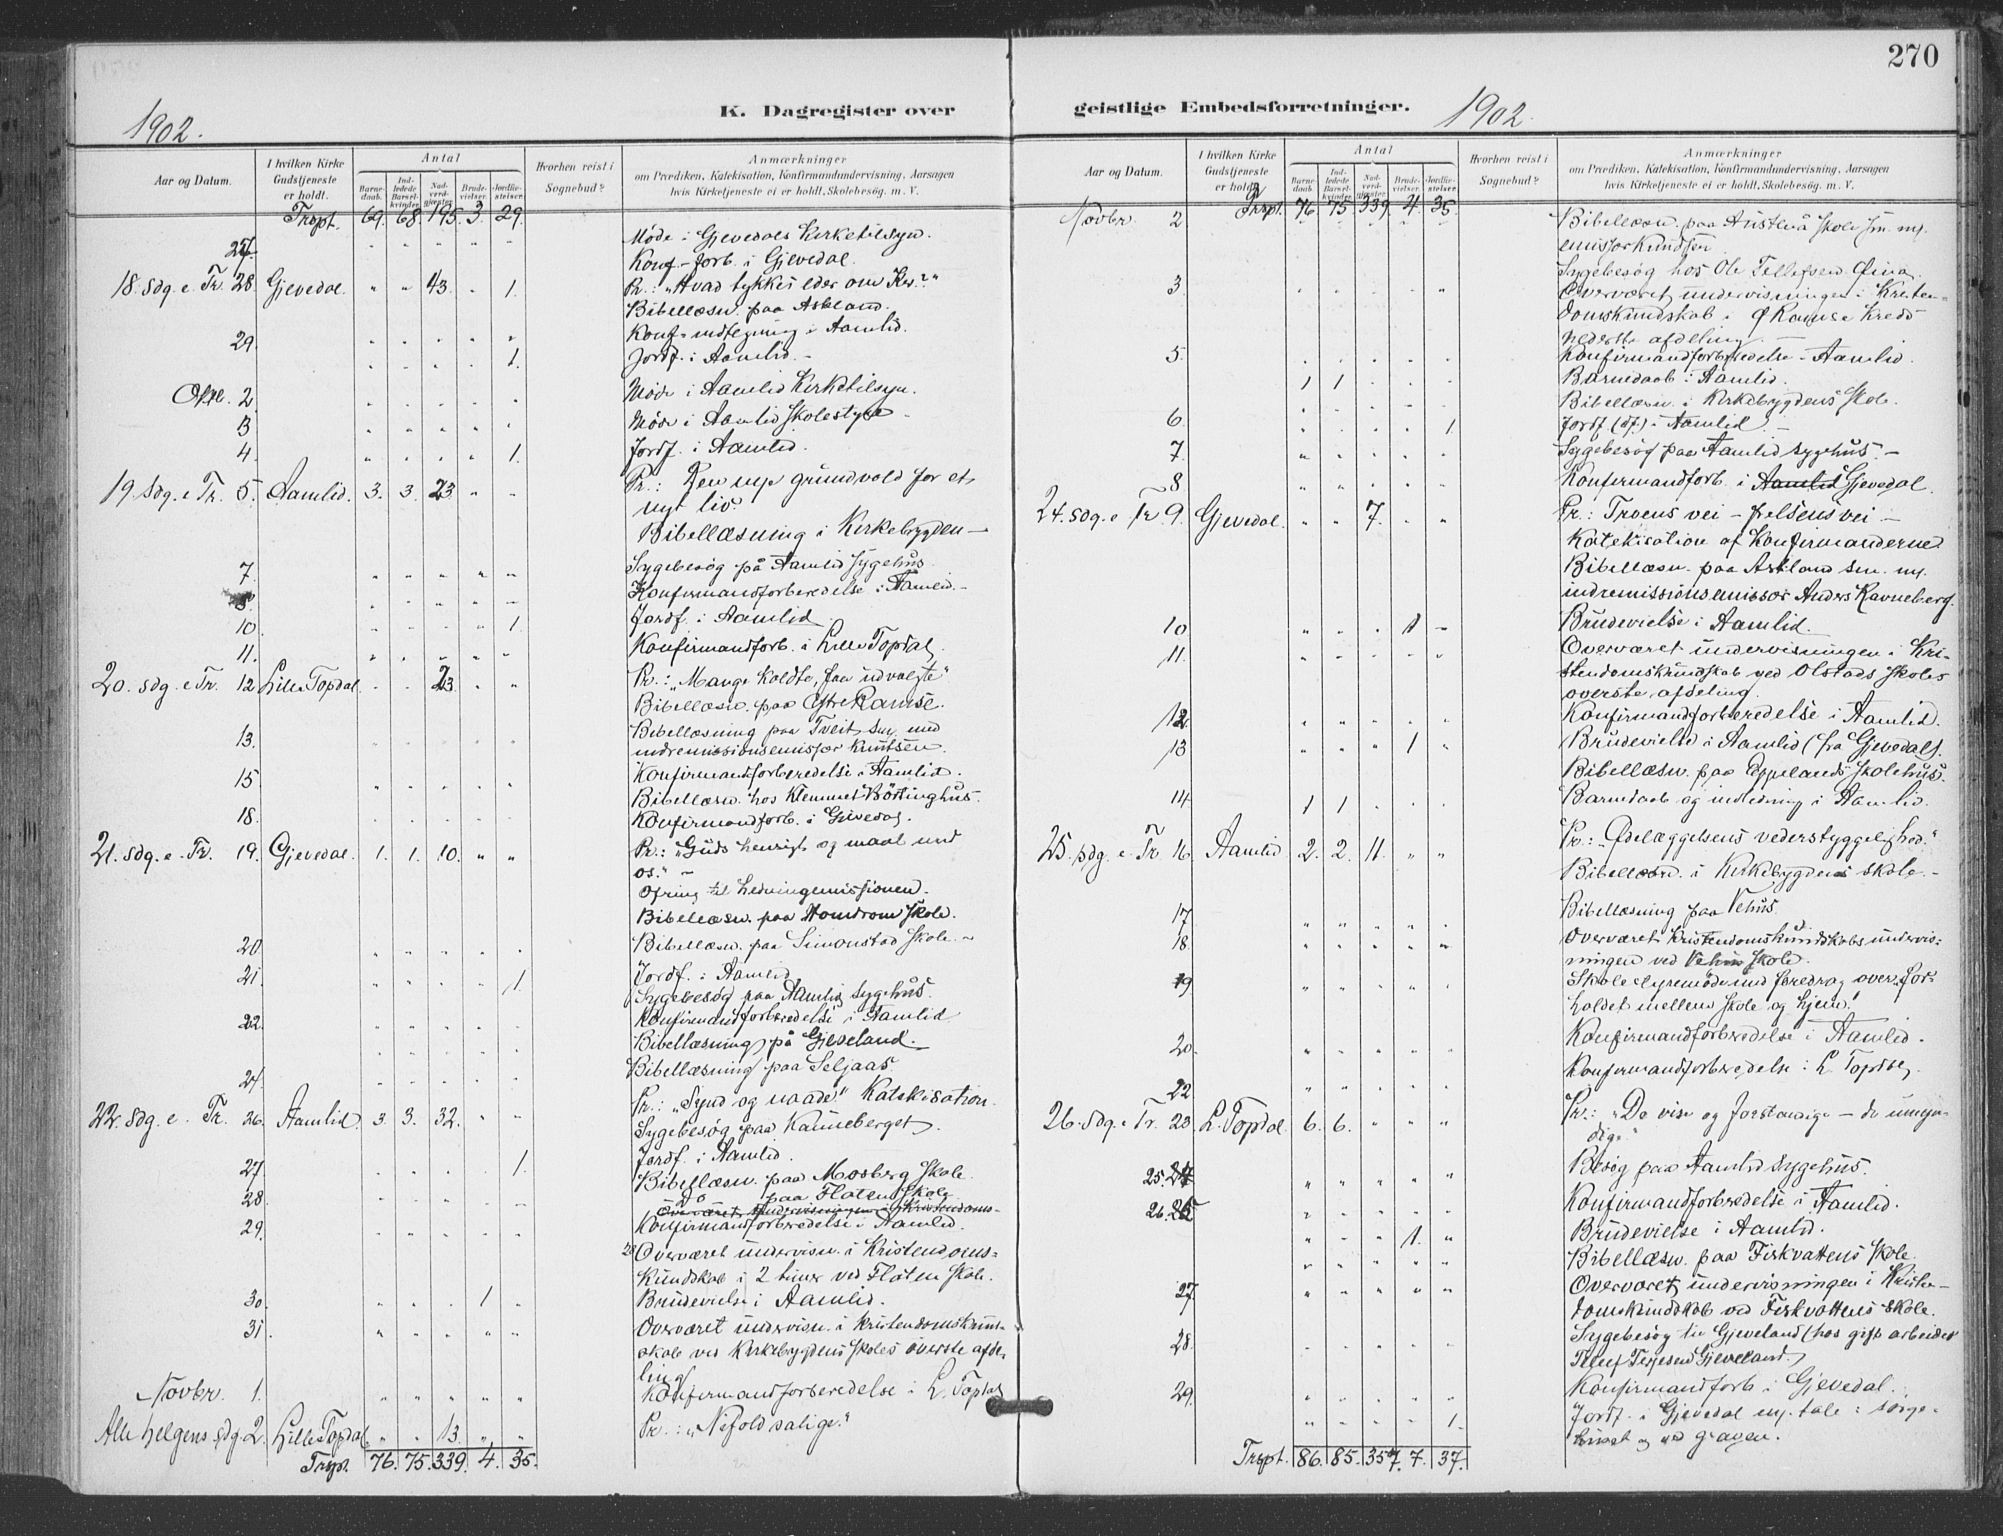 270
K. Dagregister over
geistlige Embedsforretninger.
1902.
1902.
Aar og Datum.
I hvilken Kirke Gudstjeneste er holdt.
Antal
Barne-daab.
Ind-ledede Barsel-kvinder.
Nad-verd-gjester.
Brude-vielser.
Jordfæ-stelser.
Hvorhen reist i Sognebud?
Anmærkninger
om Prædiken, Katekisation, Konfirmandundervisning, Aarsagen
hvis Kirketjeneste ei er holdt, Skolebesøg. m. V.
Trspt. 69. 68. 195. 3. 29.
Møde i Gjevedals Kirketilsyn.
27. Konf-forb. i Gjevedal.
18. Sdg. e. Tr. 28. Gjevedal. " " 43. " 1. Pr.: "Hvad tykkes eder om Krs?"
Bibellæsn. paa Askland.
29. Konf-indtegning i Aamlid.
1. Jordf. i Aamlid. -
Okt. 2. Møde i Aamlid Kirketilsyn.
3. Møde i Aamlid Skolestyre.
4. 1. Jordf. i Aamlid.
19. Sdg. e Tr. 5. Aamlid. 3. 3. 23. " " Pr.: Den nye grundvold for et
nyt liv.
Bibellæsning i Kirkebygden -
7. Sygebesøg på Aamlid sygehus.
8. Konfirmandforberedelse i Aamlid. -
10. 1. Jordf. i Aamlid
11. Konfirmandforb. i Lille Topdal.
20. Sdg. e Tr. 12 Lille Topdal. " " 23. " " Pr.: "Mange kaldte, faa udvalgte"
Bibellæsn. paa Øfre Ramse.
13. Bibellæsning paa Tveit sm. med
indremissionsemissær Knutsen.
15. Konfirmandforberedelse i Aamlid.
Bibellæsn. hos Klemmet Börtinghus.
18. Konfirmandforb. i Gjevedal.
21. Sdg. e. Tr. 19. Gjevedal. 1. 1. 10. " " Pr.: "Guds henrigt og maal med
os." -
Ofring til Hedningemissionen.
Bibellæsn. paa Homdrom Skole.
20. Bibellæsn. paa Simonstad Skole. -
21. 1. Jordf. i Aamlid
Sygebesøg paa Aamlid sygehus.
22. Konfirmandforberedelse i Aamlid
Bibellæsning på Gjeveland.
24. Bibellæsning paa Seljaas.
22. Sdg. e. Tr. 26. Aamlid. 3. 3. 32. " " Pr.: "Synd og naade" Katekisation.
Sygebesøg paa Kanneberget.
27. 1. Jordf. i Aamlid.
Bibellæsn. paa Mosberg Skole.
28. Do paa Flaten Skole
Overværet undervisningen i Kristendoms-
29. Konfirmandforberedelse i Aamlid.
28 Overværet undervisn. i Kristendoms-
kundskab i 2 timer ved Flaten Skole.
30. 1. Brudevielse i Aamlid.
31. Overværet undervisn. i kristendomskund-
skab ved Kirkebygdens Skoles överste afde-
ling
Novbr. 1. Konfirmandforberedelse i L. Topdal
Alle Helgens sdg. 2. Lille Topdal " " 13. " " Pr.: "Nifold salige."
Trspt. 76. 75. 339. 4. 35.
Aar og Datum.
I hvilken Kirke Gudstjeneste er holdt.
Antal
Barne-daab.
Ind-ledede Barsel-kvinder.
Nad-verd-gjester.
Brude-vielser.
Jordfæ-stelser.
Hvorhen reist i Sognebud?
Anmærkninger
om Prædiken, Katekisation, Konfirmandundervisning, Aarsagen
hvis Kirketjeneste ei er holdt, Skolebesøg. m. V.
Trspt. 76 75 339. 4. 35.
Novbr 2 Bibellæsn. paa Skole sm. m.
emissær Knudsen
Sygebesøg hos Ole Tellefsen
3 Overværet undervisningen i Kristen-
domskundskab i Ø Ramse Kreds
nederste afdeling.
5. Konfirmandforberedelse - Aamlid.
1 1 Barnedaab i Aamlid.
Bibellæsn. i Kirkebygdens Skole.
6. 1. Jordf. i Aamlid -
7. Sygebesøg paa Aamlid sygehus. -
8 Konfirmandforb. i Aamlid Gjevedal.
24. Sdg. e Tr 9. Gjevedal. " " 7. " " Pr.: Troens vei - frelsens vei -
Katekisation af Konfirmanderne.
Bibellæsn. paa Askland sm. m.
indremissionsemissær Anders Ravneberg.
10 1 Brudevielse i Aamlid.
11. Overværet undervisningen i Kri-
stendomskundskab ved Olstads Skoles
overste afdeling.
12. Konfirmandforberedelse i Aamlid.
13 1 Brudevielse i Aamlid (fra Gjevedal).
Bibellæsn. paa Eppelands Skolehus.
14. 1 1 Barnedaab og indledning i Aamlid.
25. sdg. e Tr. 16. Aamlid 2. 2. 11. " " Pr.: "Ødelæggelsens vederstyggelighed."
Bibellæsn. i Kirkebygdens skole. -
17 Bibellæsning paa Vehus.
18. Overværet kristendomskundskabsundervis-
ningen ved Vehus Skole.
19 Skolestyremøde med foredrag over "For-
holdet mellem skole og hjem"
20. Konfirmandforberedelse i Aamlid.
22 Konfirmandforberedelse i L. Topdal.
26. Sdg. e Tr. 23. L. Topdal 6. 6. " " " Pr.: "De vise og forstandige - de umyn-
dige"
25. 24 Besøg paa Aamlid Sygehus.
26. 25 Konfirmandforberedelse i Aamlid.
1. Brudevielse i Aamlid.
Bibellæsn. paa Fiskvattens Skole
27 Overværet undervisningen i Kristen-
domskundskab ved Fiskvattens skole.
28. Sygebesøg til Gjeveland (hos gift arbeider
Tellef Terjesen Gjeveland.)
29. Konfirmandforb. i Gjevedal.
1. Jordf. i Gjevedal m. tale i sørge-
huset og ved graven.
Trspt. 86. 85. 357. 7. 37.